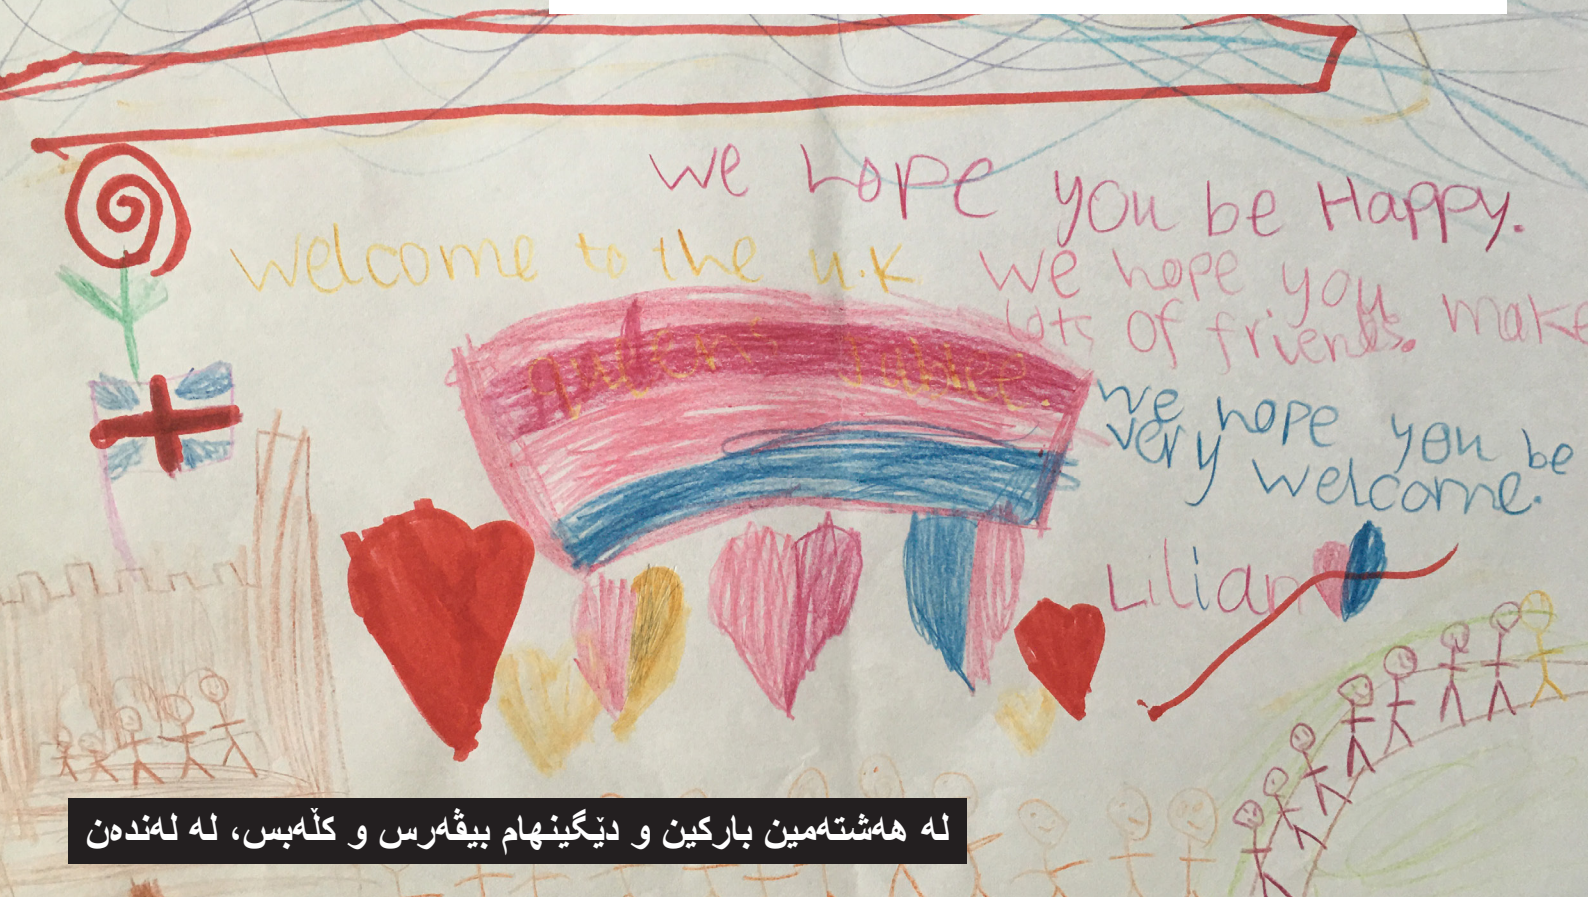 we hope you be Happy.
welcome to the u.K
we hope you make
lots of friends.
queens Jubilee.
we hope you be
very welcome.
Lilian
لە هەشتەمین بارکین و دێگینهام بیڤەرس و کڵەبس، لە لەندەن